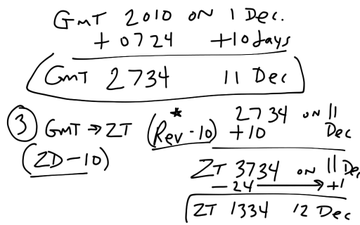 GMT 2010 ON 1 Dec.
+ 0724 +10 days
GMT 2734 11 Dec
③ GMT → ZT (Rev -10) * 2734 on 11 Dec
(ZD -10) +10
ZT 3734 on 11 Dec
- 24 → +1
ZT 1334 12 Dec